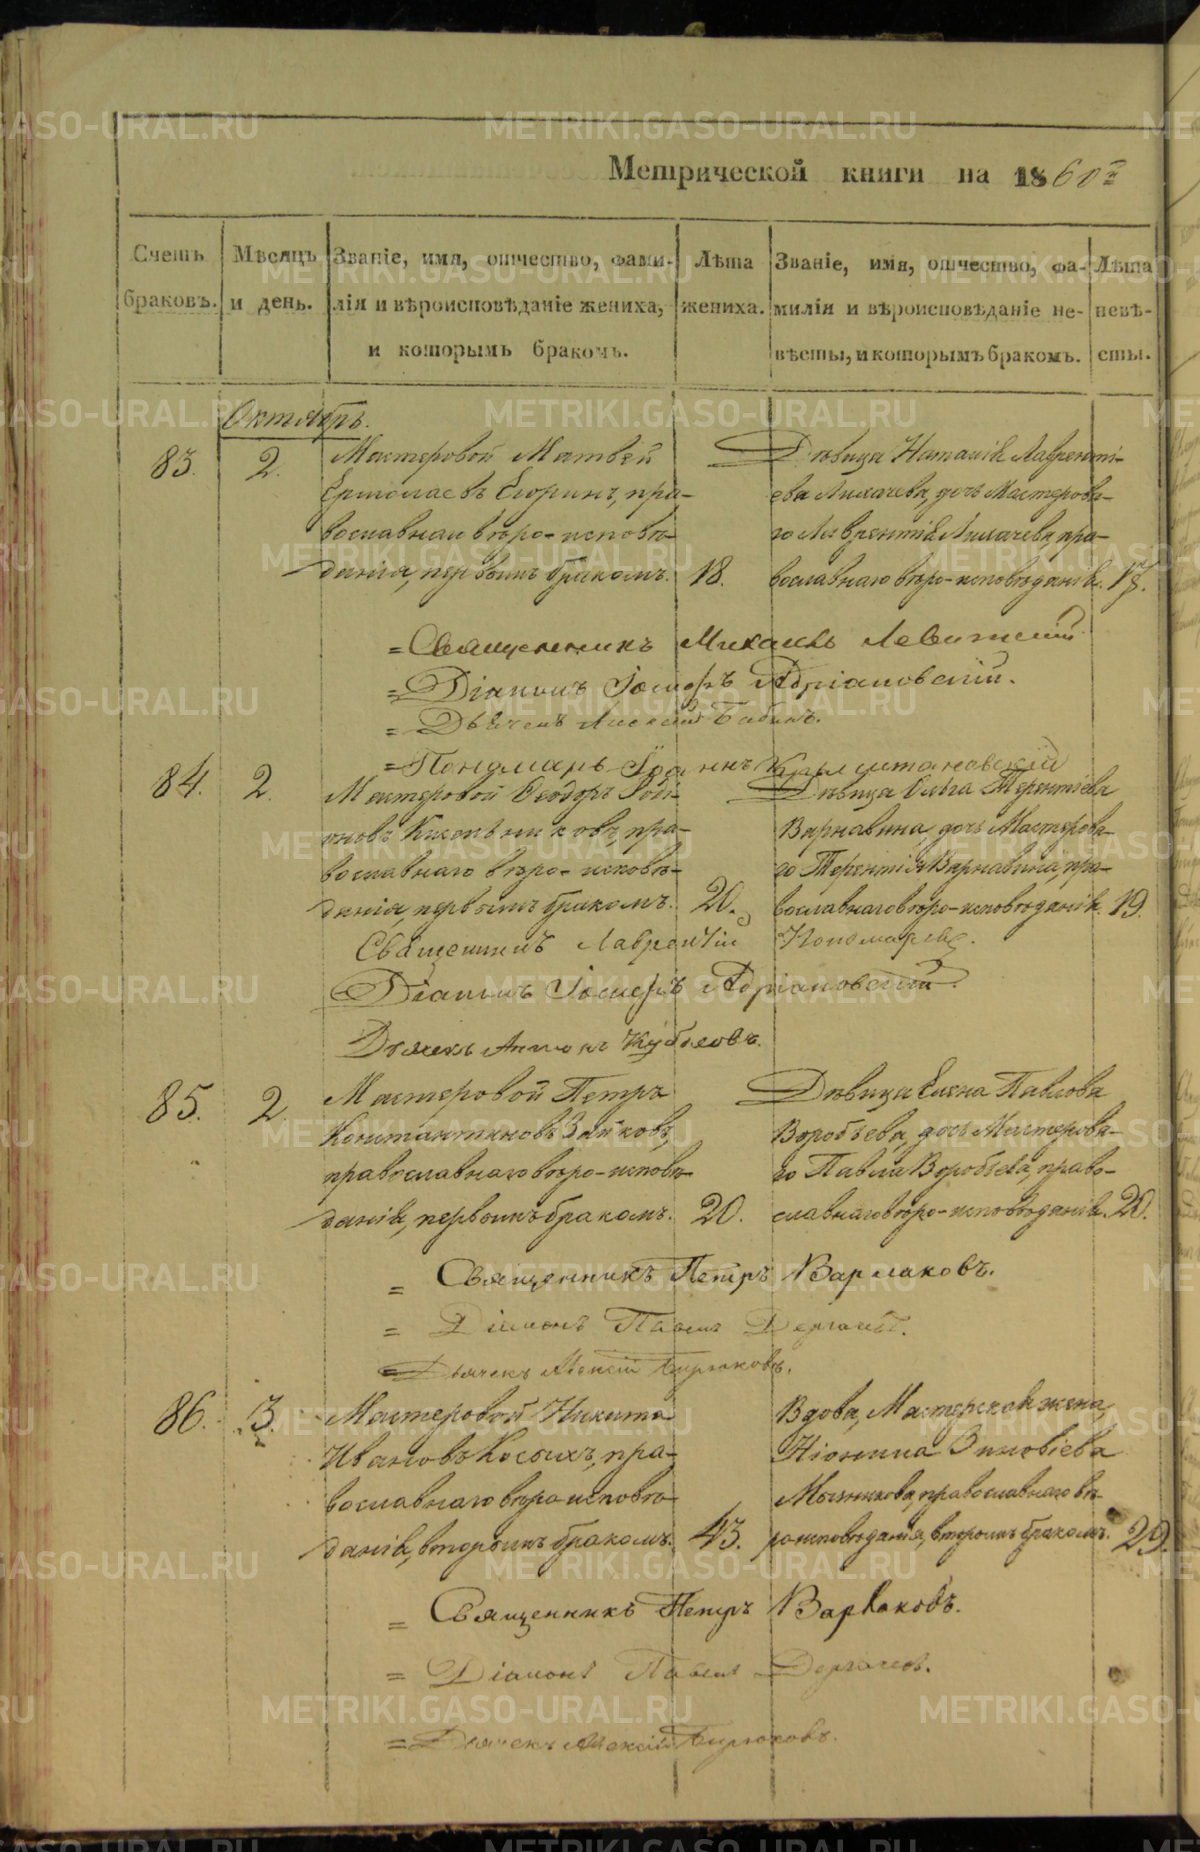 Метрической книги на 1860й
Счетъ браковъ.
Мѣсяцъ и день.
Званіе, имя, отчество, фами-
лія и вѣроисповѣданіе жениха,
и которымъ бракомъ.
Лѣта жениха.
Званіе, имя, отчество, фа-
милія и вѣроисповѣданіе не-
вѣсты, и которымъ бракомъ.
Лѣта невѣ-
сты.
Октябрь.
83. 2.
Мастеровой Матвѣй
Ермолаевъ Егоринъ, пра-
вославнаго вѣро-исповѣ-
данія, первымъ бракомъ. 18.
Дѣвица Наталія Лавренті-
ева Лихачева, дочь Мастерова-
го Лаврентія Лихачева, пра-
вославнаго вѣро-исповѣданія. 17.
=Священникъ Михаилъ Левитскій
=Діаконъ Іосифъ Адріановскій.
=Дьячекъ Алексѣй Бабинъ.
=Пономарь Іоаннъ
84. 2.
Мастеровой Ѳеодоръ Роди-
оновъ пра-
вославнаго вѣро-исповѣ-
данія, первымъ бракомъ. 20.
Дѣвица Ольга Терентіева
Варнавина, дочь Мастерова-
го Терентія Варнавина, пра-
вославнаго вѣро-исповѣданія. 19.
Священникъ Лаврентій Пономаревъ.
Діаконъ Іосифъ Адріановскій.
Дьячекъ Антонъ
85. 2
Мастеровой Петръ
Константиновъ Зайковъ,
православнаго вѣро-исповѣ-
данія, первымъ бракомъ. 20.
Дѣвица Елена Павлова
Воробьева, дочь Мастерова-
го Павла Воробьева, право-
славнаго вѣро-исповѣданія. 20.
= Священникъ Петръ Варлаковъ.
= Діаконъ Павелъ Дергачевъ.
=Дьячекъ Алексій Бирюковъ.
86. 3.
Мастеровой Никита
Ивановъ Косыхъ, пра-
вославнаго вѣроисповѣ-
данія, вторымъ бракомъ. 43.
Вдова, Мастерская жена,
Ніонила Зиновіева
православнаго вѣ-
роисповѣданія, вторымъ бракомъ. 29.
= Священникъ Петръ Варлаковъ.
= Діаконъ Павелъ Дергачевъ.
=Дьячекъ Алексій Бирюковъ.
METRIKI.GASO-URAL.RU